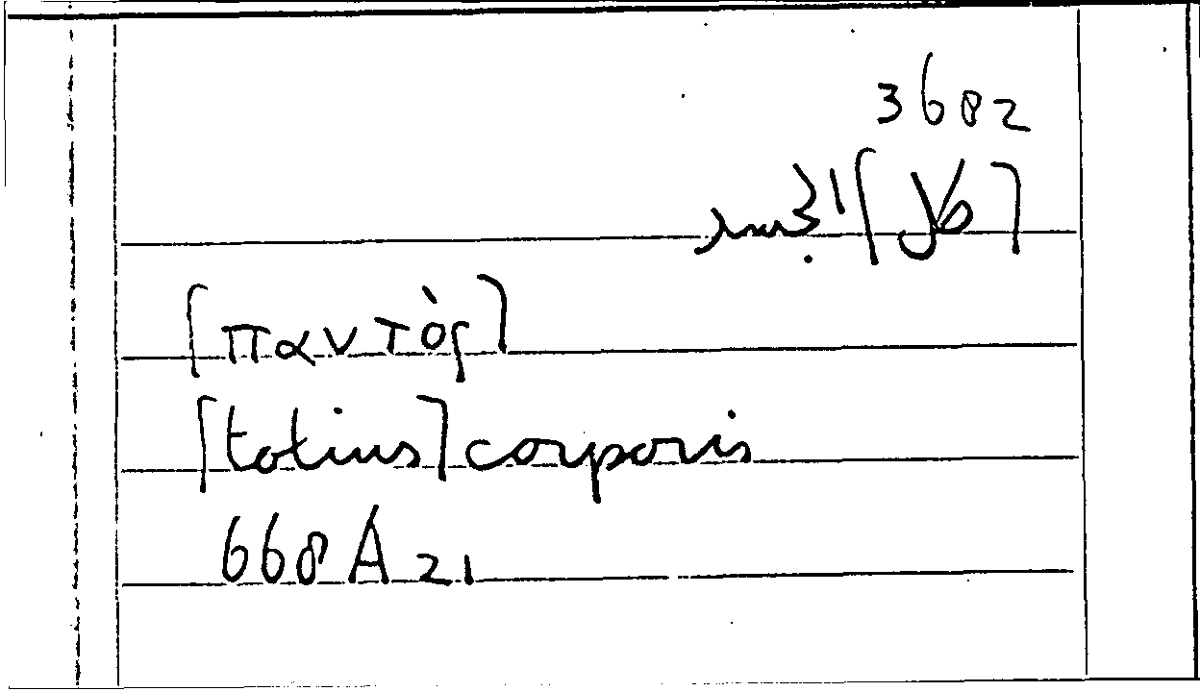 3682
[παντὸς]
[totius] corporis
668 A 21